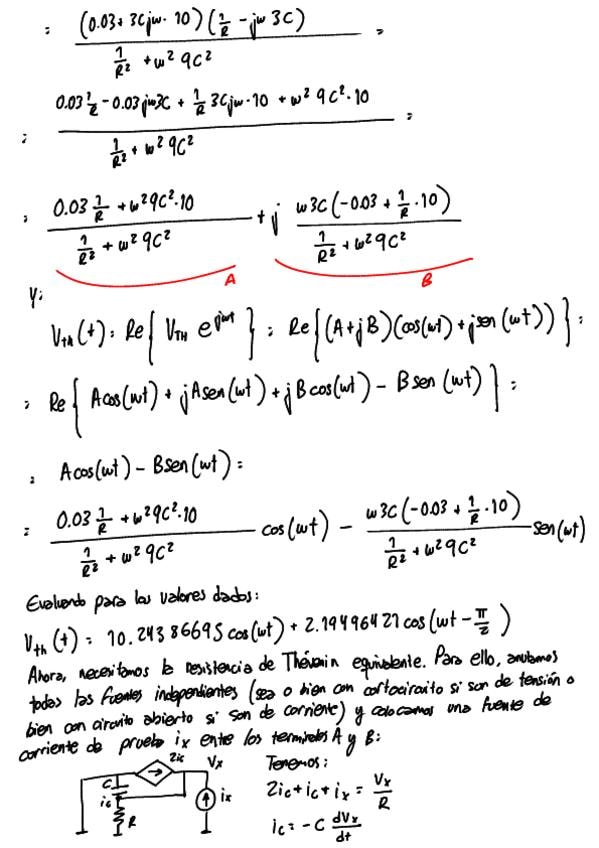 = (0.03 + 3Cjw · 10) (1/R - jw 3C) / (1/R² + w² 9C²) =
= (0.03 1/R - 0.03jw3C + 1/R 3Cjw·10 + w² 9C²·10) / (1/R² + w² 9C²) =
= (0.03 1/R + w²9C²·10) / (1/R² + w² 9C²) + j (w3C(-0.03 + 1/R · 10)) / (1/R² + w²9C²)
A B
Y:
V_TH(t) = Re{ V_TH e^{jwt} } = Re{(A+jB)(cos(wt) + jsen(wt))} =
= Re{ Acos(wt) + jAsen(wt) + jBcos(wt) - Bsen(wt) } =
= Acos(wt) - Bsen(wt) =
= (0.03 1/R + w²9C²·10) / (1/R² + w² 9C²) cos(wt) - (w3C(-0.03 + 1/R · 10)) / (1/R² + w²9C²) sen(wt)
Evaluando para los valores dados:
V_th(t) = 10.24386695 cos(wt) + 2.19496421 cos(wt - π/2)
Ahora, necesitamos la resistencia de Thévenin equivalente. Para ello, anulamos
todas las fuentes independientes (sea o bien con cortocircuito si son de tensión o
bien con circuito abierto si son de corriente) y colocamos una fuente de
corriente de prueba ix entre los terminales A y B:
2ic Vx
C ic R ix
Tenemos:
2ic + ic + ix = Vx/R
ic = -C dVx/dt